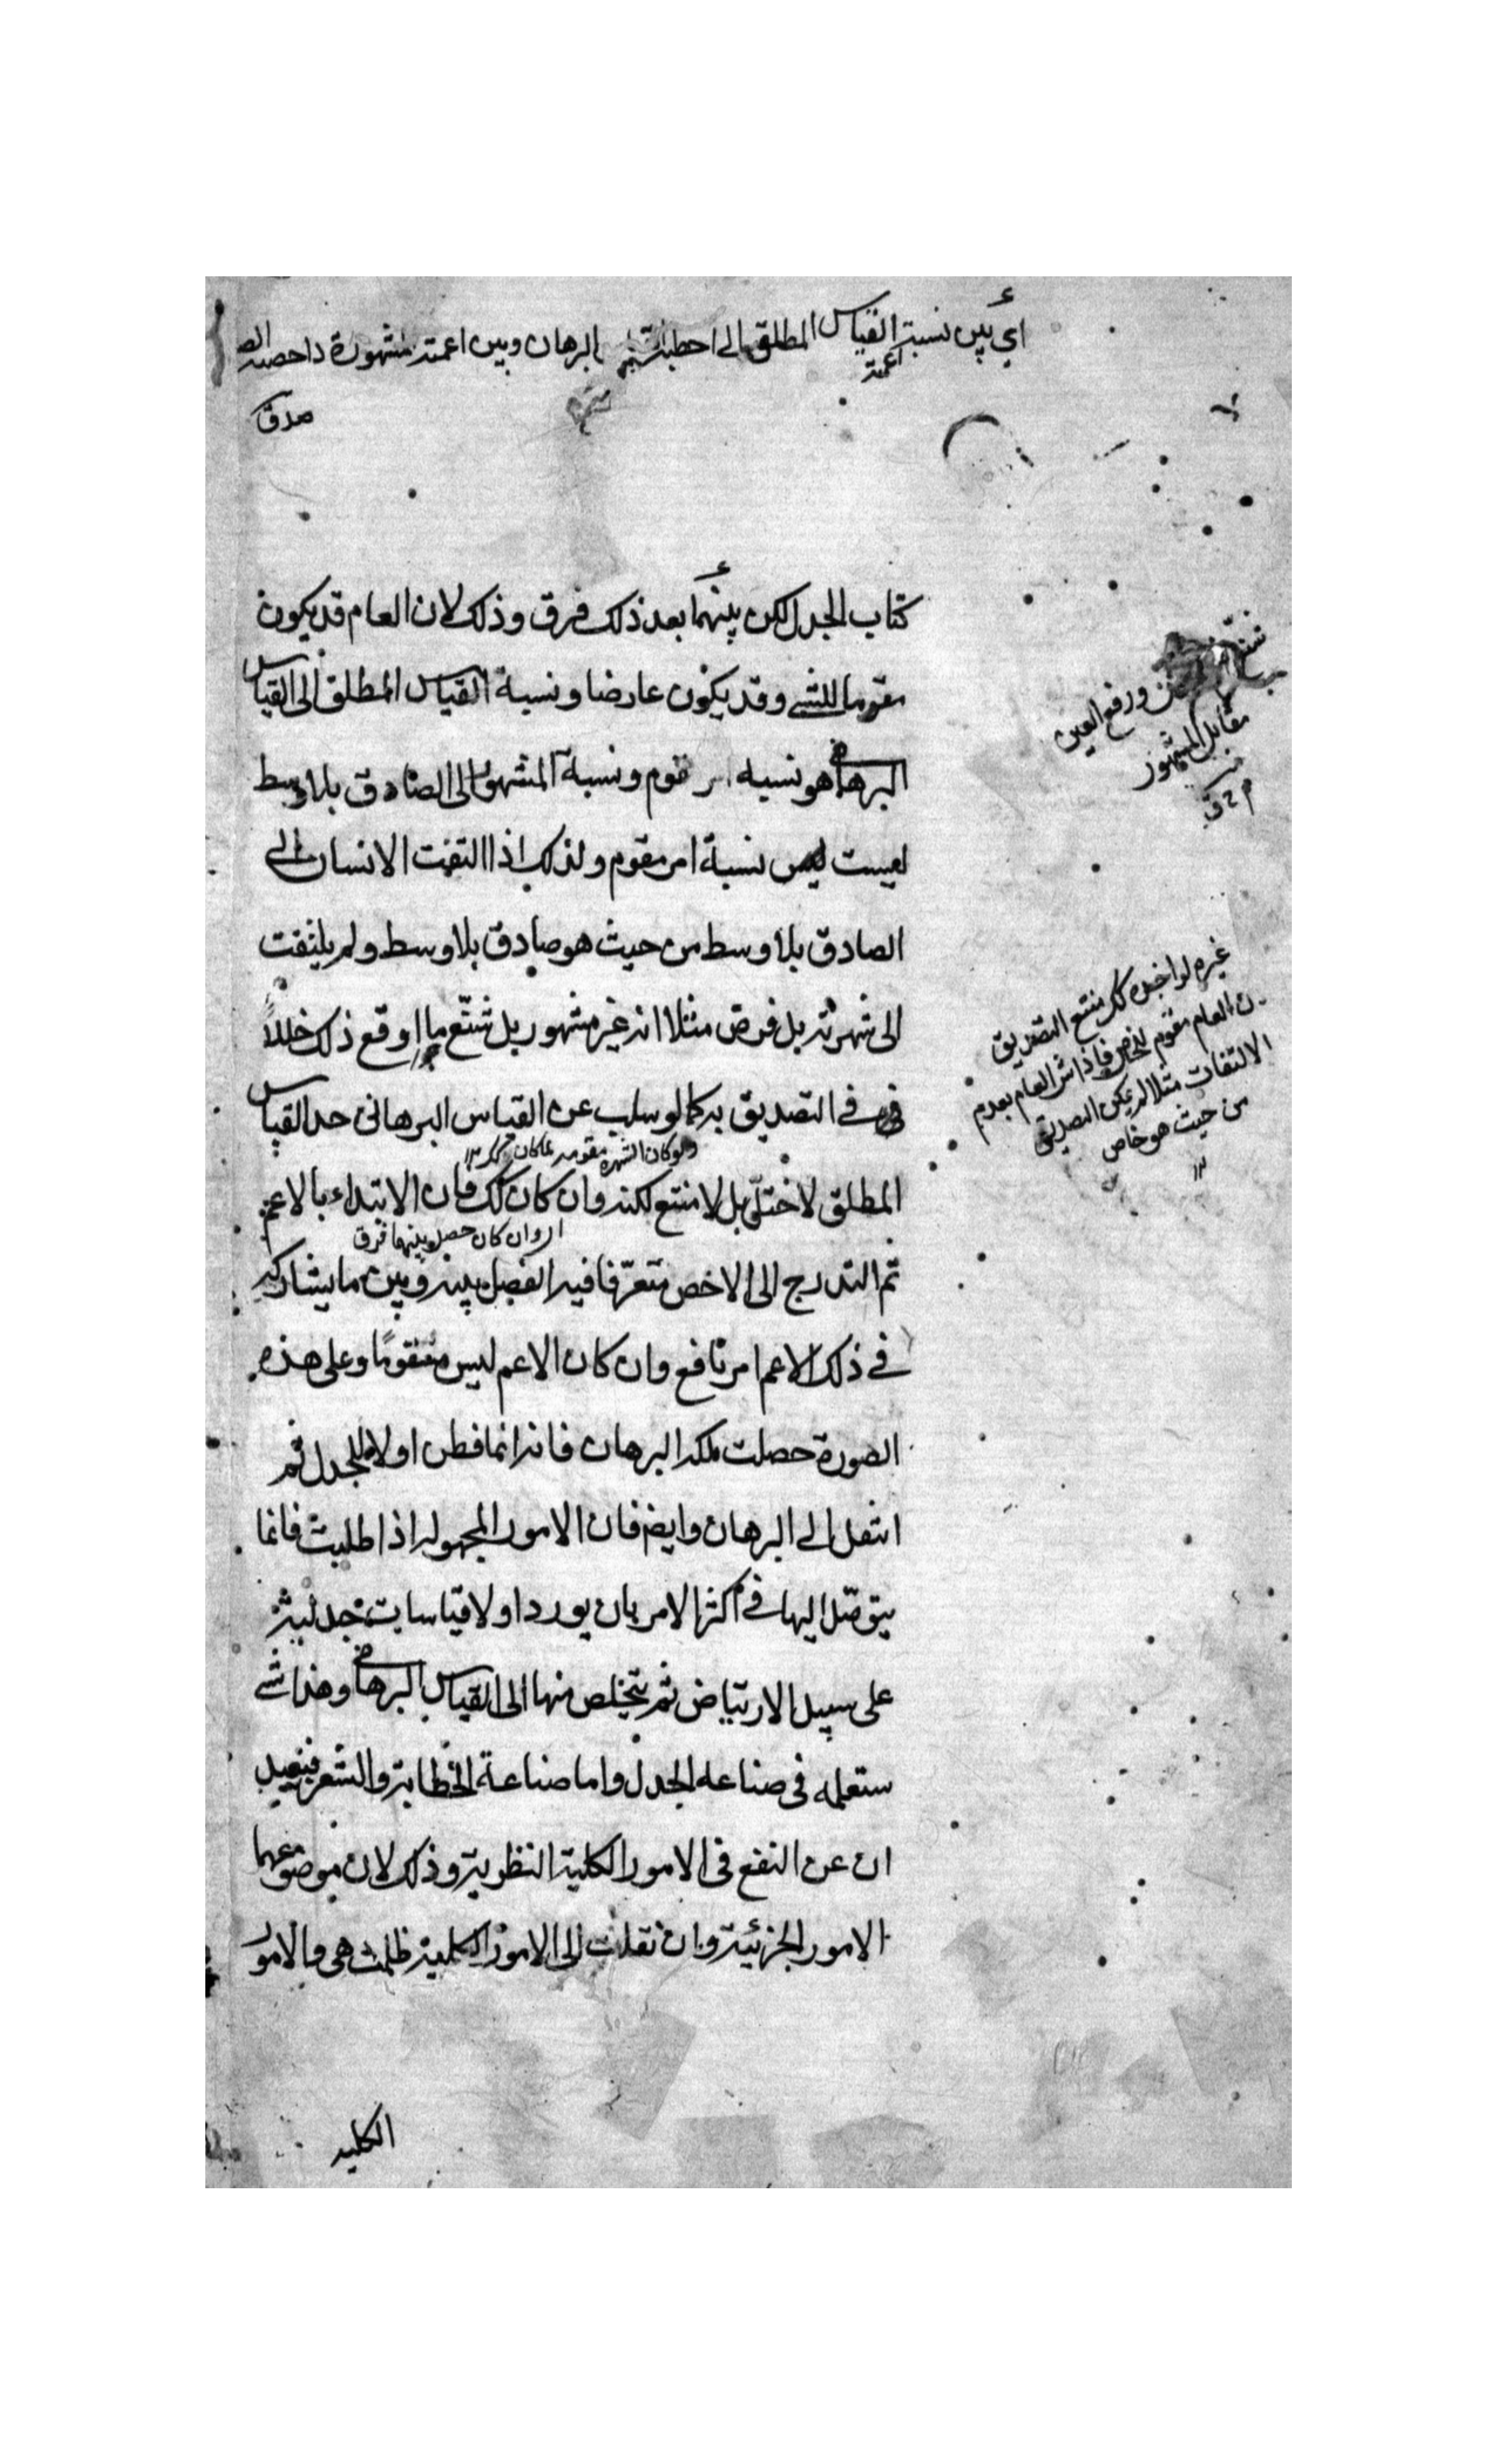 أي بين نسبة القياس المطلق الى البرهان وبين اعمية مشهورة
اعمية
صدق
كتاب الجدل لكن بينهما بعد ذلك فرق وذلك لان العام قد يكون
مقوما للشئ وقد يكون عارضا ونسبة القياس المطلق الى القياس
البرهانى هو نسبه امر مقوم ونسبة المشهور الى الصادق بلا وسط
ليست نسبة امر مقوم ولذلك اذا التفت الانسان الى
الصادق بلا وسط من حيث هو صادق بلا وسط ولم يلتفت
الى شهرته بل فرض مثلا انه غير مشهور بل شنّع ما اوقع ذلك خللاً
فى التصديق به كما لو سلب عن القياس البرهانى حد القياس
ولو كان الشهره مقومه
المطلق لاختلّ بل لامتنع لكنه وان كان كك فان الابتداء بالاعم
اى وان كان حصل بينهما فرق
ثم التدرج الى الاخص متعرّفا فيه الفصل بينه وبين ما يشاركه
فى ذلك الاعم امر نافع وان كان الاعم ليس مقومًا وعلى هذه
الصورة حصلت ملكه البرهان فانه انما فطن اولا للجدل ثم
انتقل الى البرهان وايضا فان الامور المجهوله اذا طلبت فانما
يتوصّل اليها فى اكثر الامر بان يورد اولا قياسات جدلية
على سبيل الارتياض ثم يتخلص منها الى القياس البرهانى وهذا شئ
ستعلمه فى صناعه الجدل واما صناعة الخطابة والشعر فبعيد
ان عن النفع فى الامور الكلية النظرية وذلك لان موضوعهما
الامور الجزئية وان نقلت الى الامور الكلية ظلمت هى والامور
الكليه
ورفع العين
مقابل المشهور
غيره لو اخذه كك منتع التصديق
ن العام مقوم للخاص فاذا العام بعدم
الالتفات مثلا لم يمكن التصديق
من حيث هو خاص